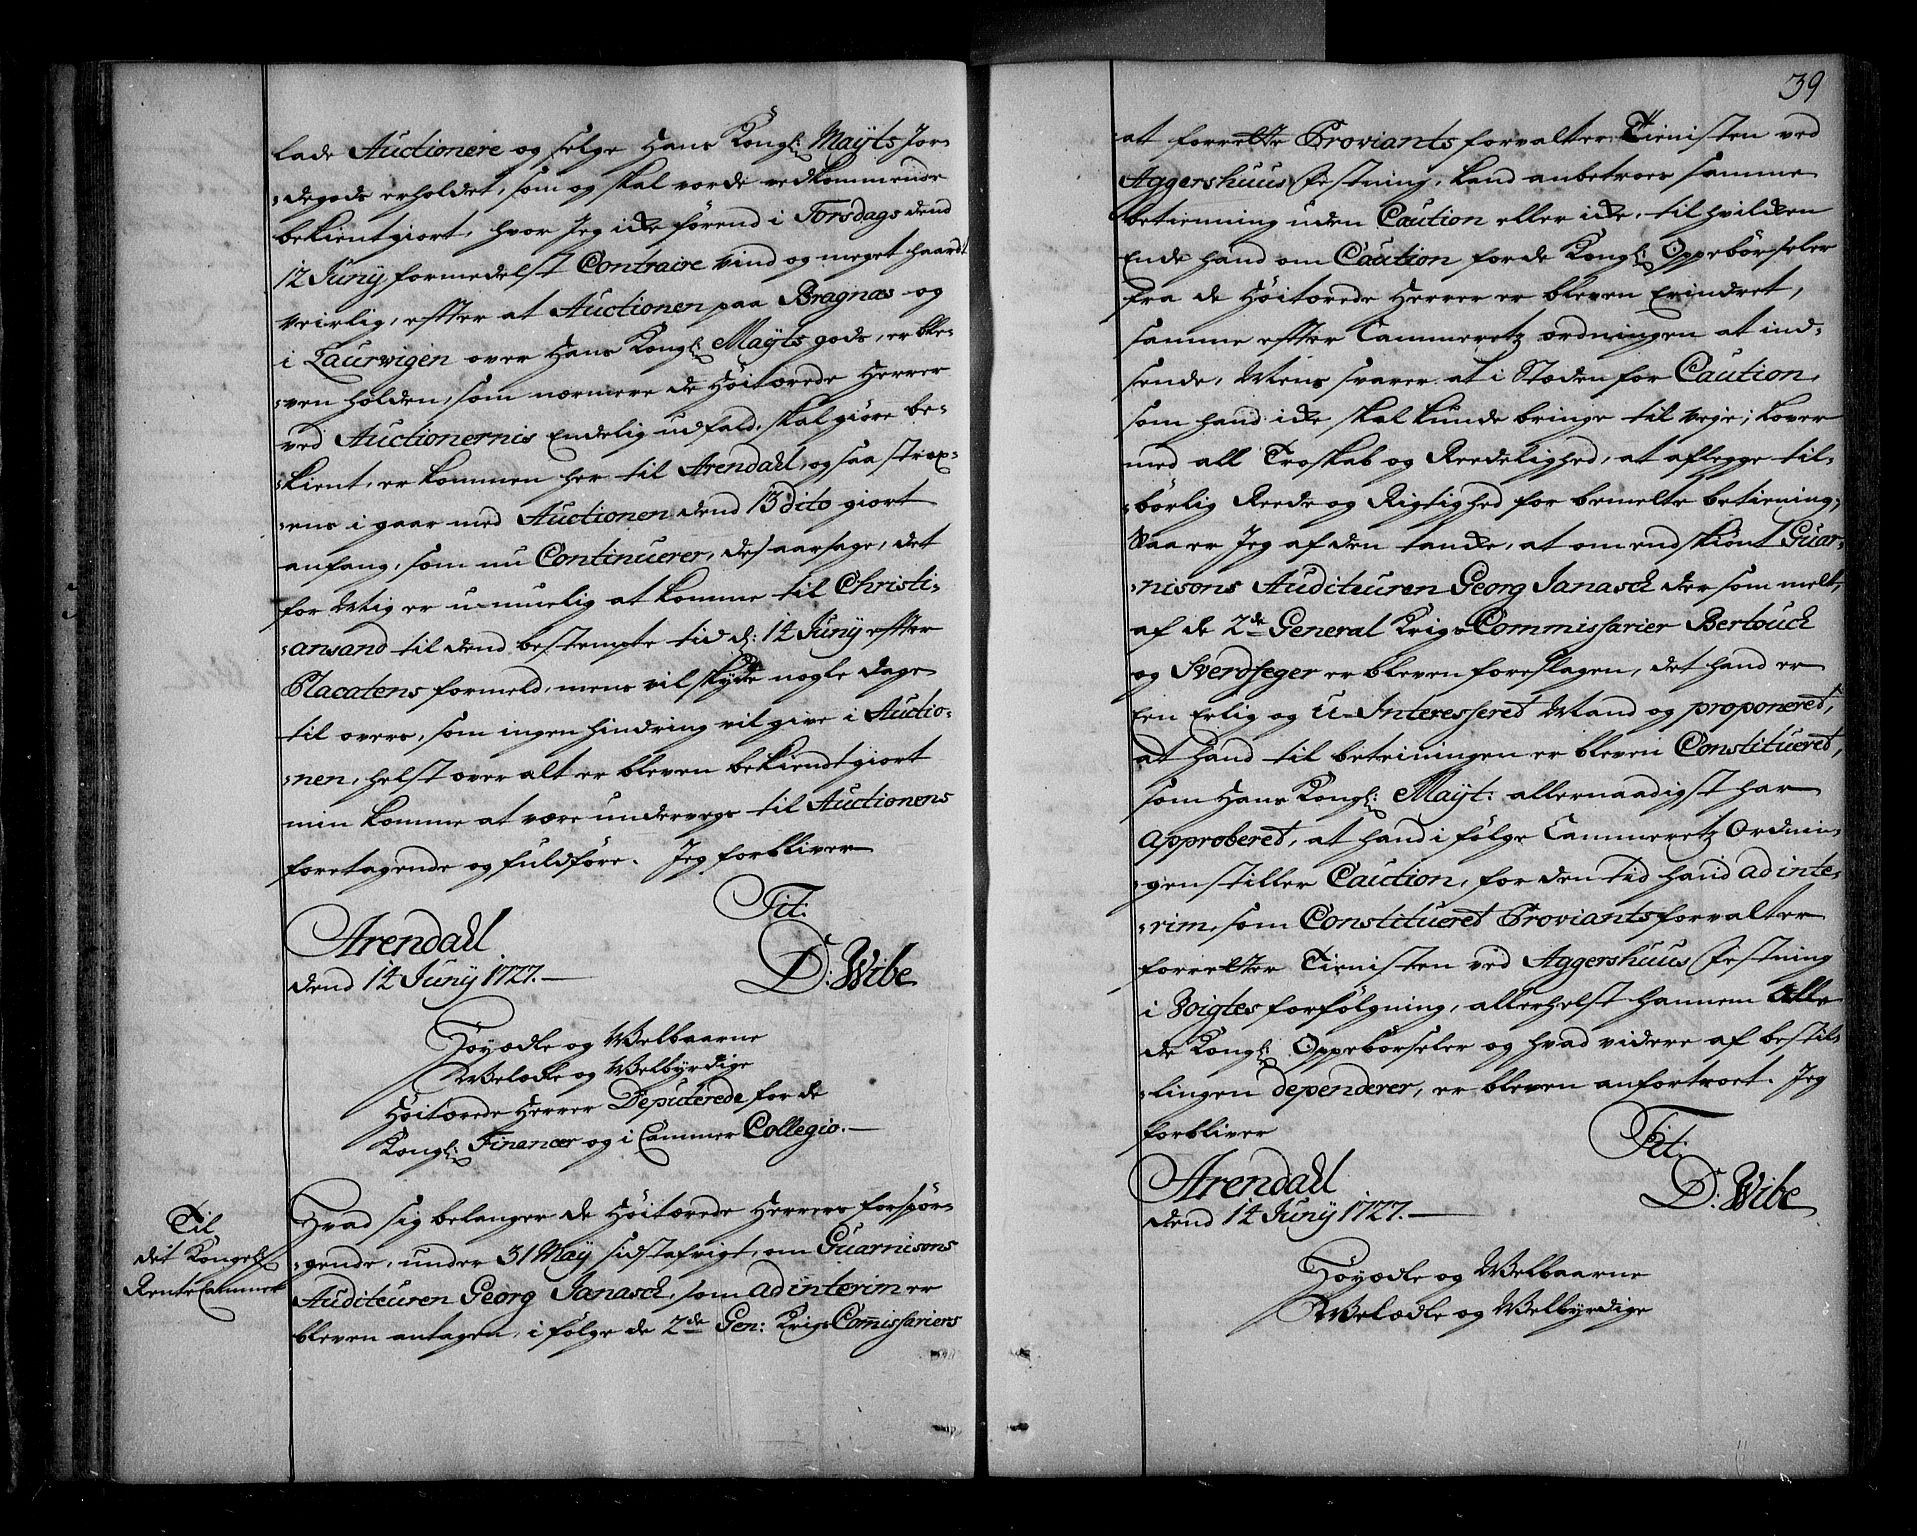 lade Auctionere og selge Hans Kongl: Mayts Jor-
-degods erholdet, som og skal vorde vedkommende
bekientgiort, hvor Jeg icke förend i Torsdags dend
12 Juny formedelst Contraire vind og meget haardt
veirlig, effter at Auctionen paa Bragnæs og
i Laurwigen over Hans Kongl: Mayts gods, er ble-
-ven holden, som nærmere de Höitærede Herrer
ved Auctionernis Endelig udfald, skal giöre be-
-kient, er kommen her til Arendall, og saa strax-
-ens i gaar med Auctionen dend 13 dito giort
anfang, som nu Continuerer, des aarsage, det
for Mig er u-muelig at komme til Christi-
-ansand til dend bestempte tid d: 14 Juny effter
Placatens formeld, mens vil skyde nogle dage
til overs, som ingen hindring vil give i Auctio-
-nen, helst over alt er bleven bekiendtgiort
min komme at være undervegs til Auctionens
foretagende og fuldföre. Jeg forbliver
Tit:
Arendall
dend 14 Juny 1727.
D: Wibe
Höyædle og Welbaarne
Welædle og Welbyrdige
Höitærede Herrer Deputerede for de
Kongl: Financer og i Cammer Collegio.
Til
dit Kongel:
Rente Cammer
Hvad sig belanger de Höitærede Herrers forspör-
-gende, under 31 May sidstafvigt, om Guarnisons
Auditeuren Georg Janasch, som ad interim er
bleven antagen, i fölge de 2de Gen: Krigs Commissariers
39
at forrette Proviantsforvalter Tienisten ved
Aggershuus Festning, kand anbetroes samme
betienning uden Caution eller icke, til hvilcken
Ende hand om Caution for de Kongl: Oppebörseler
fra de Höitærede Herrer er bleven Erindret,
samme effter Cammeretz ordningen at ind-
sende, Mens svarer at i Stæden for Caution,
som hand icke skal kunde bringe til veje, lover
med all Troskab og Reedelighed, at aflegge til-
-börlig Reede og Rigtighed for bemelte betiening,
Saa er Jeg af den tancke, at omendskiönt Guar-
-nisons Auditeuren Georg Janasch der som melt,
af de 2de General Krigs Commissarier Bertouch
og Sverdfeger er bleven foreslagen, det hand er
Een Erlig og U-Interesseret Mand og proponeret,
at hand til betieningen er bleven Constitueret,
som Hans Kongl: Mayt: allernaadigst har
Approberet, at hand i fölge Cammeretz Ordnin-
-gen stiller Caution, for den tid hand ad inte-
-rim, som Constitueret Proviantsforvalter
forretter Tienisten ved Aggershuus Festning
i Voigtes forfölgning, allerhelst hannem Alle
de Kongl: Oppebörseler og hvad videre af bestil-
-lingen dependerer, er bleven anfortroet. Jeg
forbliver
Tit:
Arendall
dend 14 Juny 1727.
D: Wibe
Höyædle og Welbaarne
Welædle og Welbyrdige